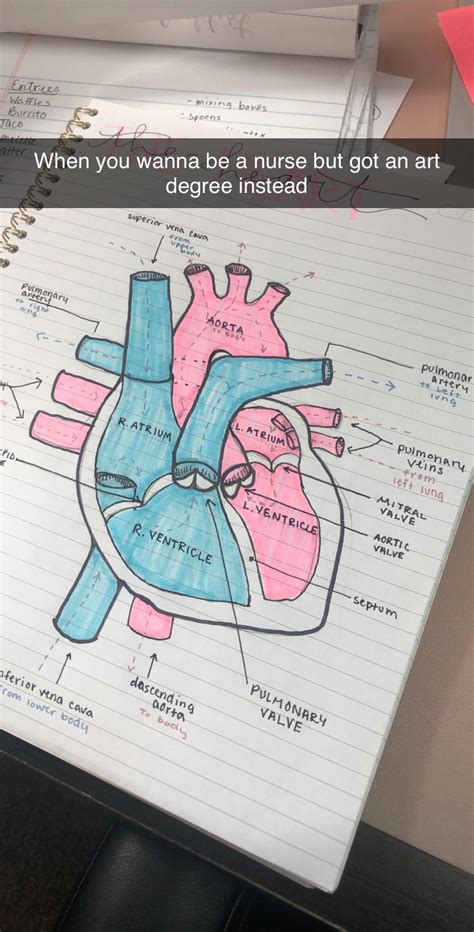 Entrees
Waffles
Burrito
Taco
- mixing bowls
- spoons
the heart
When you wanna be a nurse but got an art
degree instead
superior vena cava
from
upper
body
pulmonary
artery
to right
lung
AORTA
TO BODY
pulmonar
artery
to left
lung
R. ATRIUM
L. ATRIUM
pulmonary
veins
from
left lung
MITRAL
VALVE
AORTIC
VALVE
L. VENTRICLE
R. VENTRICLE
septum
PULMONARY
VALVE
descending
aorta
To body
nferior vena cava
from lower body